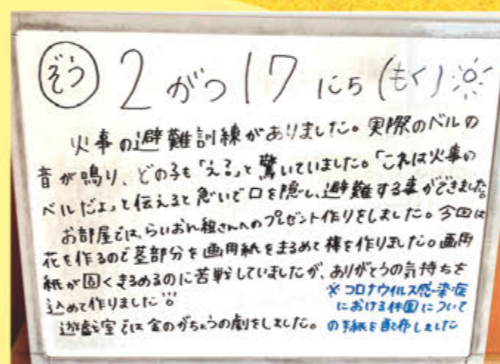 ぞう 2がつ17にち(もく)
火事の避難訓練がありました。実際のベルの
音が鳴り、どの子も「え?」と驚いていました。「これは火事の
ベルだよ」と伝えると急いで口を隠し、避難する事ができました。
お部屋では、らいおん組さんへのプレゼント作りをしました。今回は
花を作るので茎部分を画用紙をまるめて棒を作りました。画用
紙が固くまるめるのに苦戦していましたが、ありがとうの気持ちを
込めて作りました!!
遊戯室では金のがちょうの劇をしました。
※コロナウイルス感染症
における休園について
の手紙を配布しました